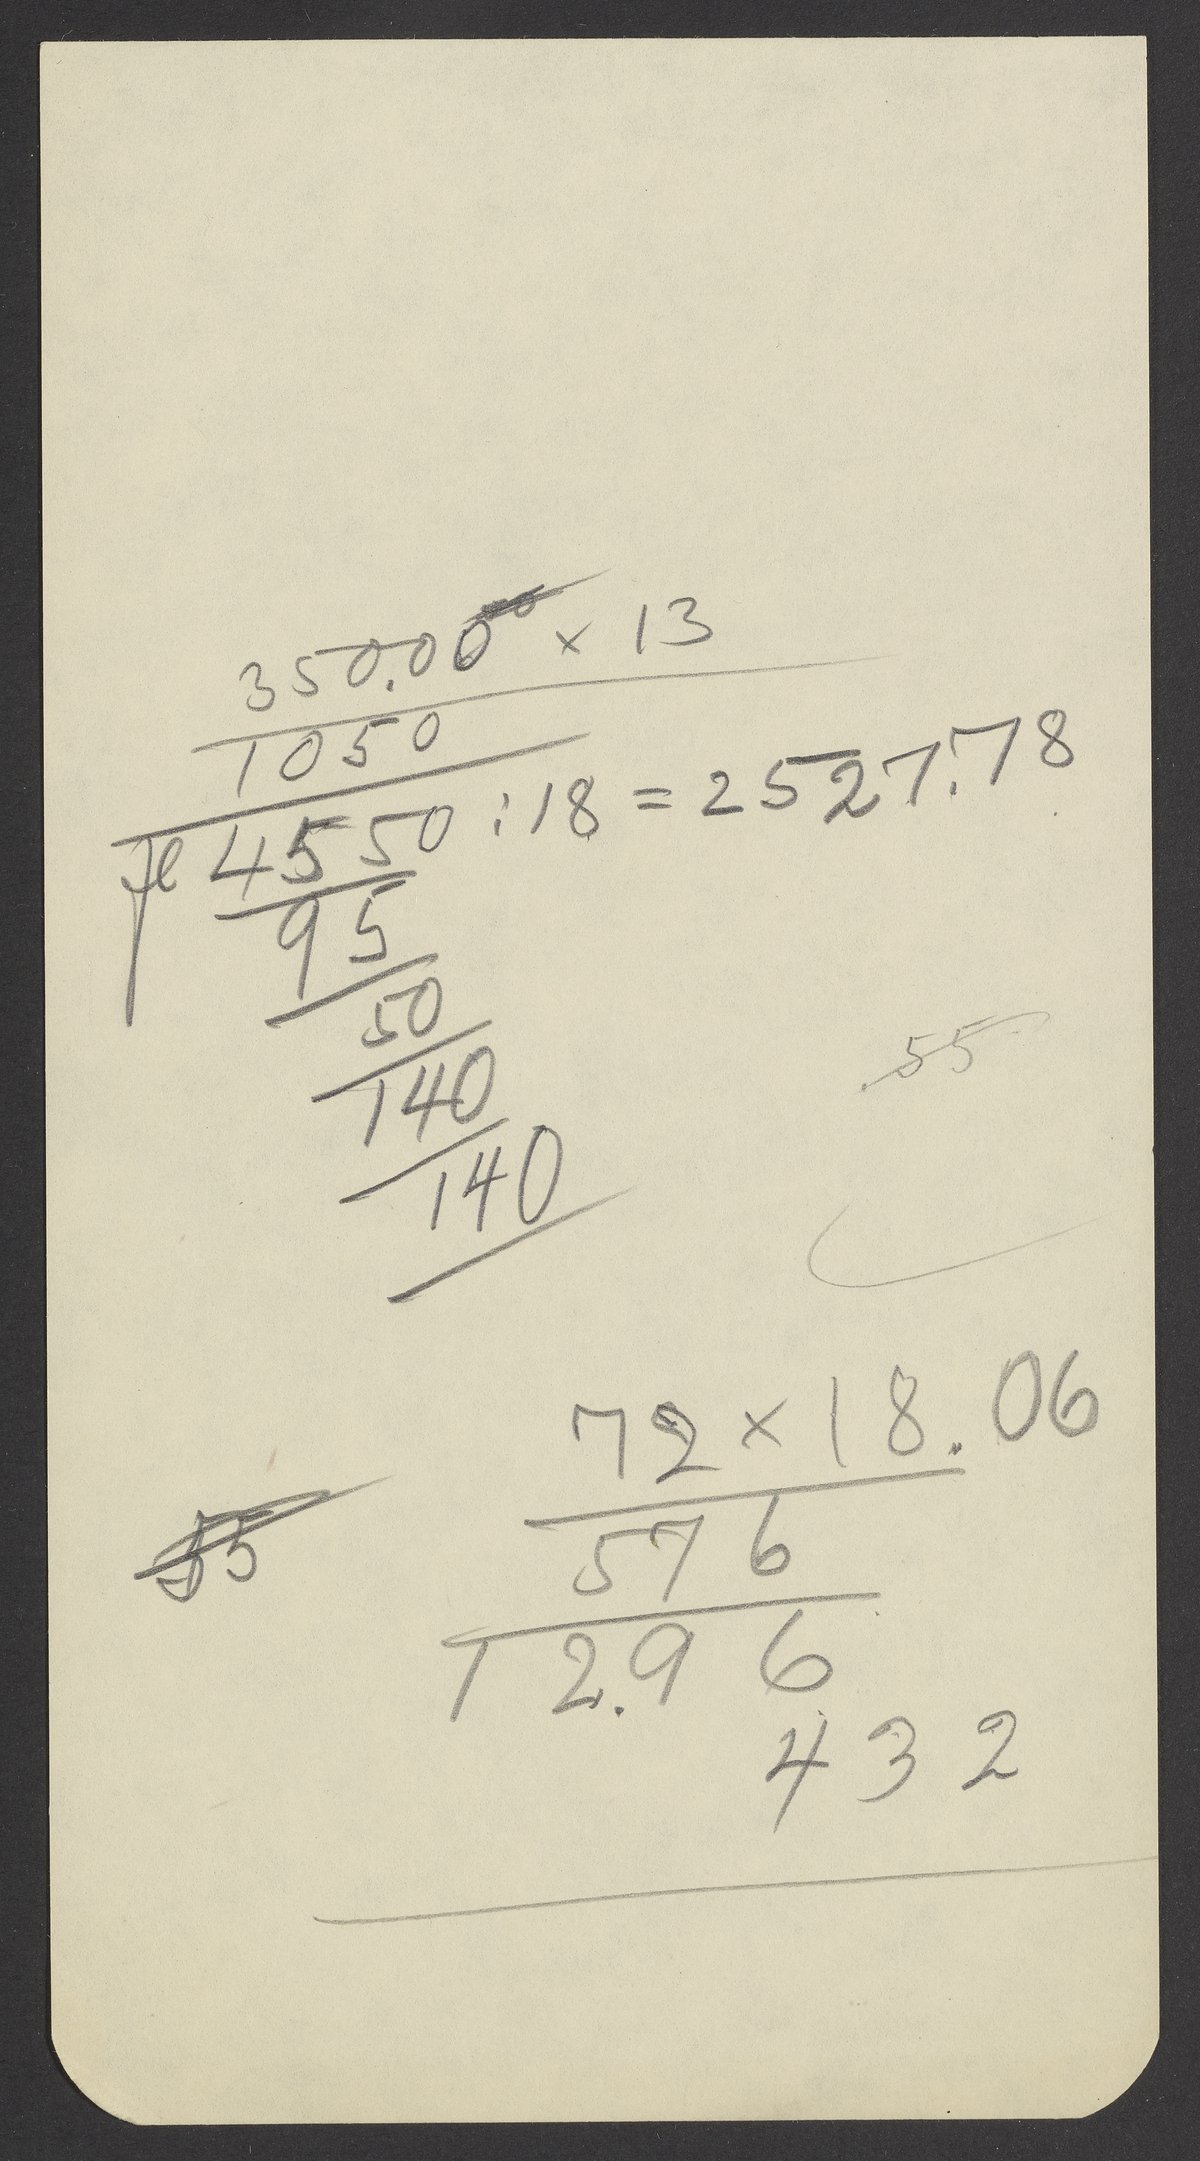 350.00 × 13
1050
fl 4550 : 18 = 2527.78
95
50
140
140
55
72 × 18.06
55
576
12.96
432